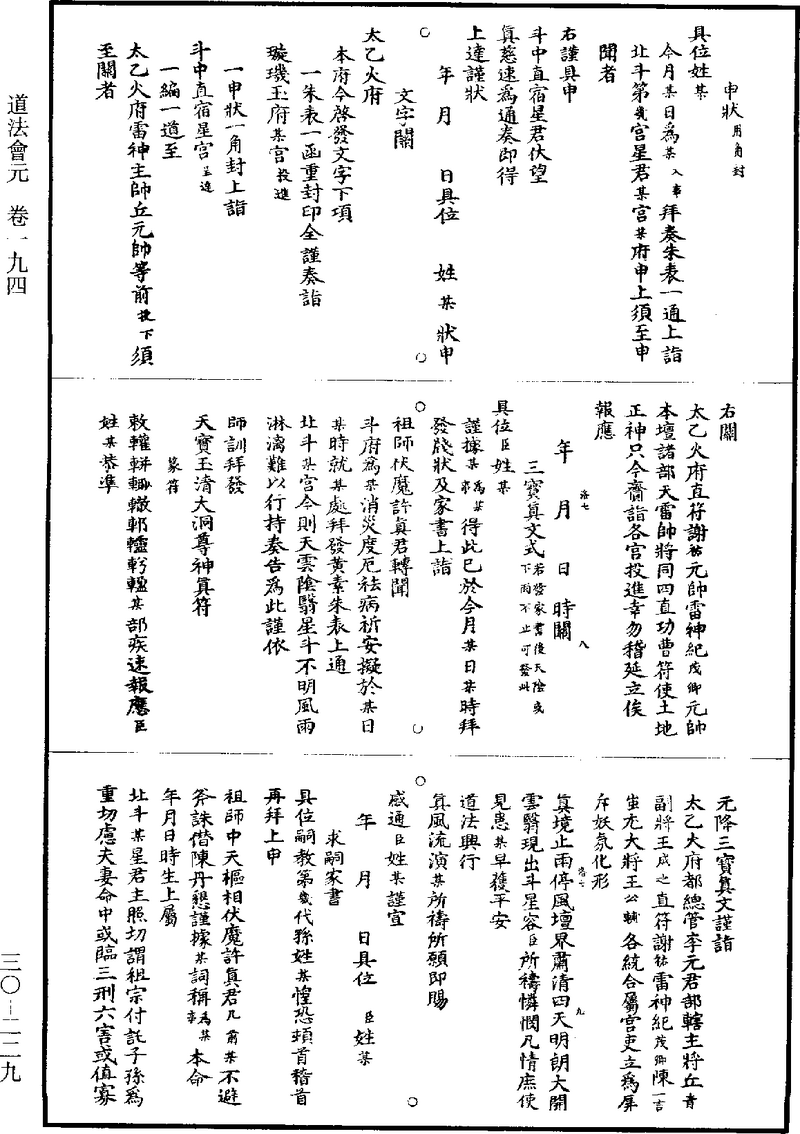 道法會元　卷一九四
申狀用角封
具位姓某
今月某日為某入事拜奏朱表一通上詣
北斗第幾宮星君某宮某府申上須至申
聞者
右謹具申
斗中直宿星君伏望
眞慈速為通奏即得
上達謹狀
年　月　　日具位　　姓某　狀申
文字關
太乙火府
本府今啓發文字下項
一朱表一函重封印全謹奏詣
璇璣玉府某宮投進
一申狀一角封上詣
斗中直宿星宮呈進
一編一道至
太乙火府雷神主帥丘元帥等前投下須
至關者
右關
太乙火府直符謝祐元帥雷神紀茂卿元帥
本壇諸部天雷帥將同四直功曹符使土地
正神只今齎詣各宮投進幸勿稽延立俟
報應
洛七　八
年　月　　日　時關
三寶眞文式若發家書後天陰或下雨不止可發此
具位臣姓某
謹據某為某事得此已於今月某日某時拜
發牋狀及家書上詣
祖師伏魔許眞君轉聞
斗府為某消災度厄祛病祈安擬於某日
某時就某處拜發黃素朱表上通
北斗某宮今則天雲陰翳星斗不明風雨
淋漓難以行持奏告為此謹依
師訓拜發
天寶玉清大洞尊神眞符
篆符
姓某恭準
元降三寶眞文謹詣
太乙火府都總管李元君部轄主將丘青
副將王成之直符謝祐雷神紀茂卿陳一言
蚩尤大將王公輔各統合屬官吏立為屏
斥妖氛化形
洛七　九
眞境止雨停風壇界肅清四天明朗大開
雲翳現出斗星容臣所禱憐憫凡情庶使
見患某早獲平安
道法興行
眞風流演某所禱所願即賜
感通臣姓某謹宣
年　月　　日具位　　臣姓某
求嗣家書
具位嗣教第幾代孫姓某惶恐頓首稽首
再拜上申
祖師中天樞相伏魔許眞君几前某不避
斧誅僣陳丹懇謹據某詞稱為某事本命
年月日時生上屬
北斗某星君主照切謂祖宗付託子孫為
重切慮夫妻命中或臨三刑六害或值寡
三〇—二二九